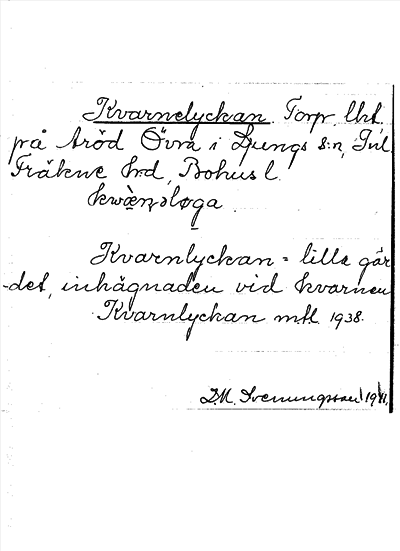 Kvarnelyckan. Torp lht
på Aröd Övra i Ljungs s:n, Inl.
Fräkne hrd, Bohus l.
Kvarnlyckan = lilla går
-det, inhägnaden vid kvarnen
Kvarnlyckan mtl. 1938.
D.M. Svenungsson 1941.